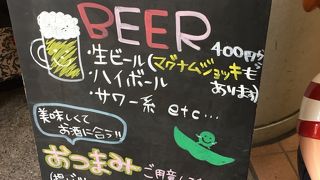 BEER
・生ビール(マグナムジョッキも
400円から
あります)
・ハイボール
・サワー系 etc...
美味しくて
お酒に合う!!
おつまみ
ご用意して